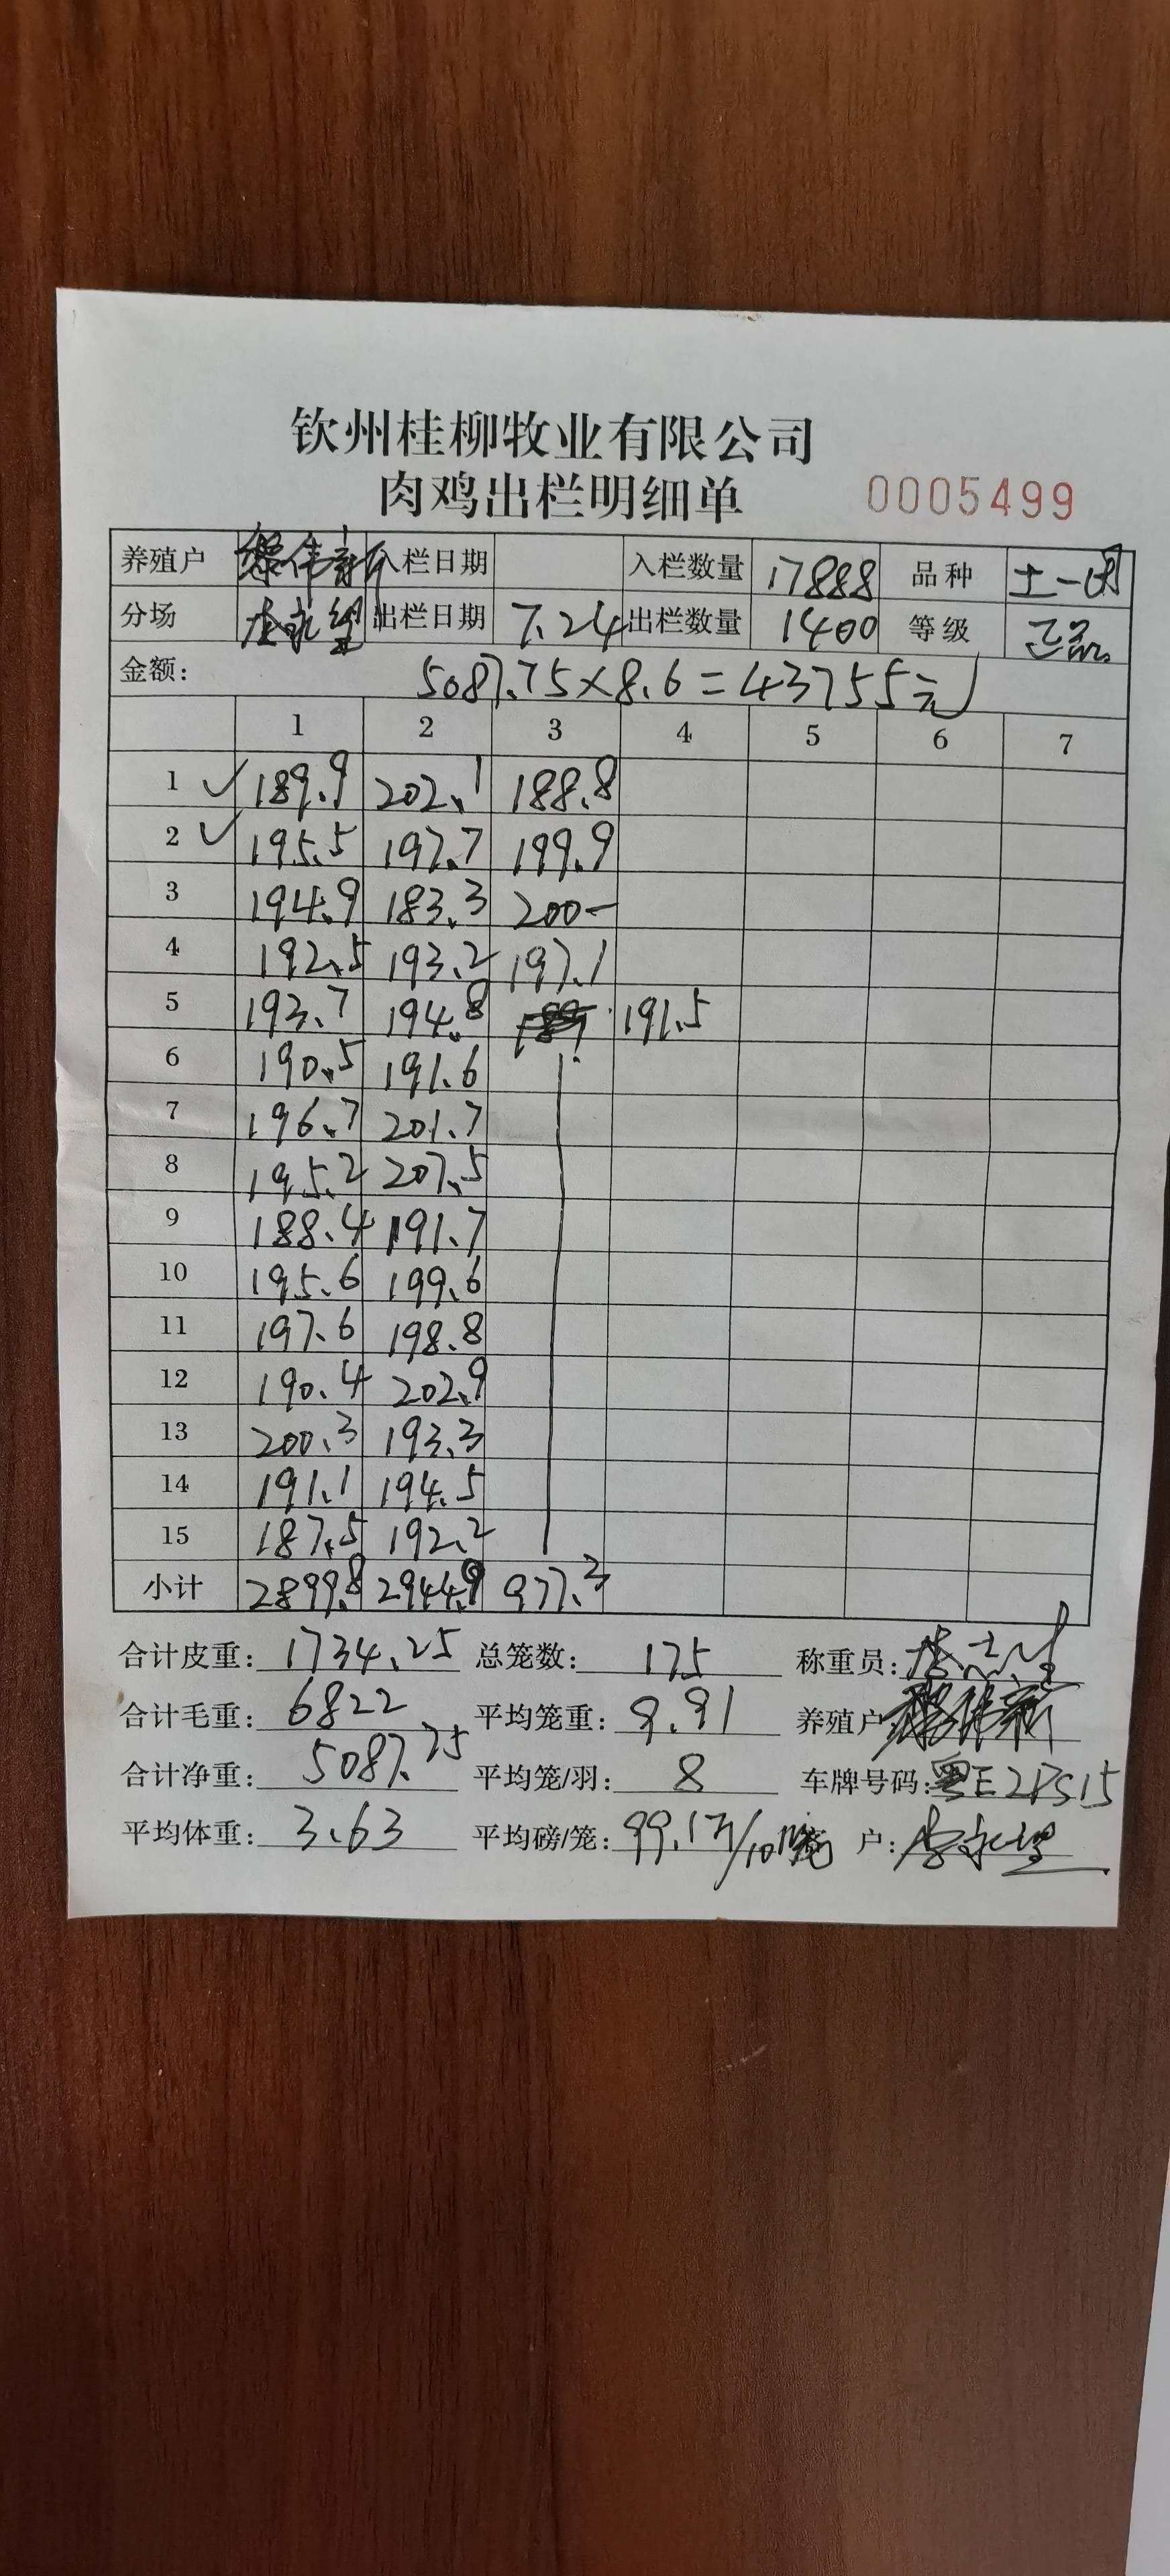 钦州桂柳牧业有限公司
肉鸡出栏明细单 0005499
养殖户 入栏日期 入栏数量 17888 品种 土一
分场 出栏日期 7.24 出栏数量 1400 等级 正品
金额: 5087.75×8.6=43755元
1 2 3 4 5 6 7
1 ✓ 189.9 202.1 188.8
2 ✓ 195.5 197.7 199.9
3 194.9 183.3 200-
4 192.5 193.2 197.1
5 193.7 194.8 191.5
6 190.5 191.6
7 196.7 201.7
8 195.2 207.5
9 188.4 191.7
10 195.6 199.6
11 197.6 198.8
12 190.4 202.9
13 200.3 193.3
14 191.1 194.5
15 187.5 192.2
小计 2899.8 2944.9 977.3
合计皮重: 1734.25 总笼数: 175 称重员:
合计毛重: 6822 平均笼重: 9.91 养殖户
合计净重: 5087.75 平均笼/羽: 8 车牌号码: 粤E2PS15
平均体重: 3.63 平均磅/笼: 99.1斤/10 户: